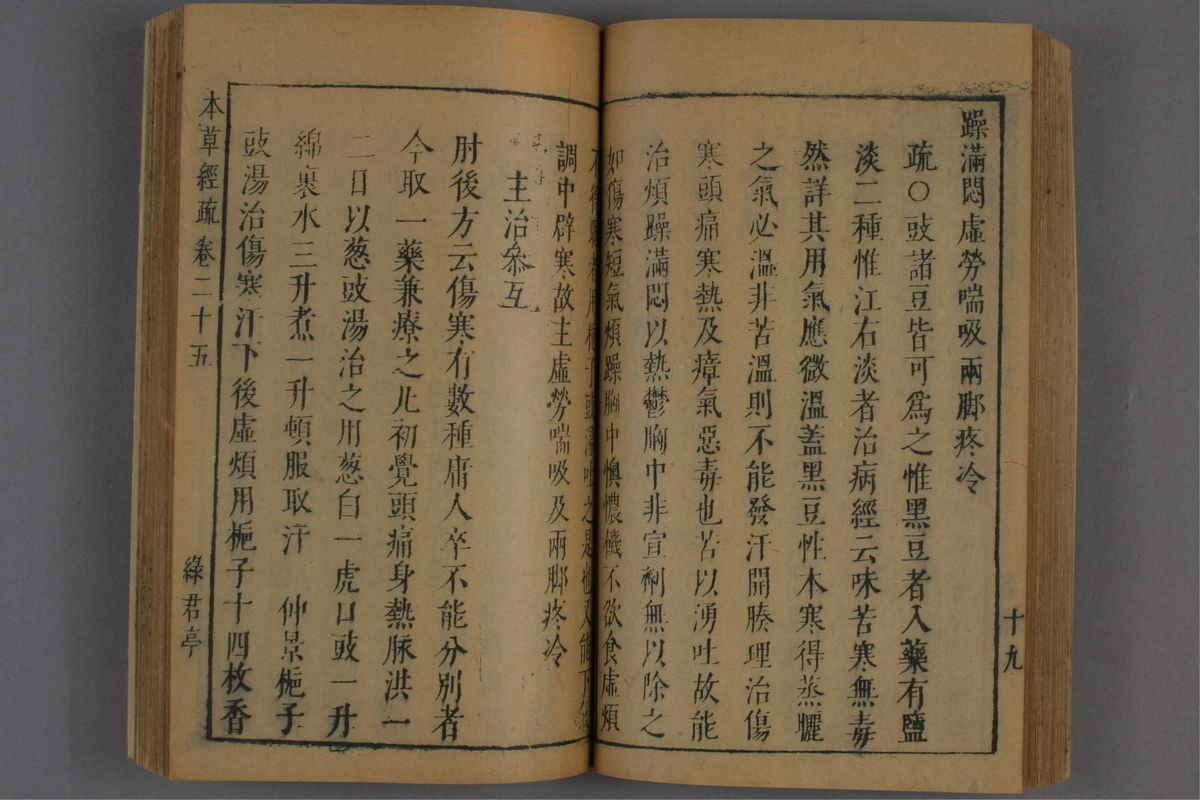 躁滿悶虛勞喘吸兩脚疼冷
疏○豉諸豆皆可爲之惟黑豆者入藥有鹽
淡二種惟江右淡者治病經云味苦寒無毒
然詳其用氣應微溫蓋黑豆性本寒得蒸曬
之氣必溫非苦溫則不能發汗開腠理治傷
寒頭痛寒熱及瘴氣惡毒也苦以湧吐故能
治煩躁滿悶以熱鬱胸中非宣劑無以除之
如傷寒短氣煩躁胸中懊憹饑不欲食虛煩
不得眠者用梔子豉湯吐之是也又能下氣
調中辟寒故主虛勞喘吸及兩脚疼冷
主治叅互
肘後方云傷寒有數種庸人卒不能分別者
今取一藥兼療之凡初覺頭痛身熱脉洪一
二日以葱豉湯治之用葱白一虎口豉一升
綿裹水三升煮一升頓服取汗 仲景梔子
豉湯治傷寒汗下後虛煩用梔子十四枚香
本草經疏 卷二十五
綠君亭
十九